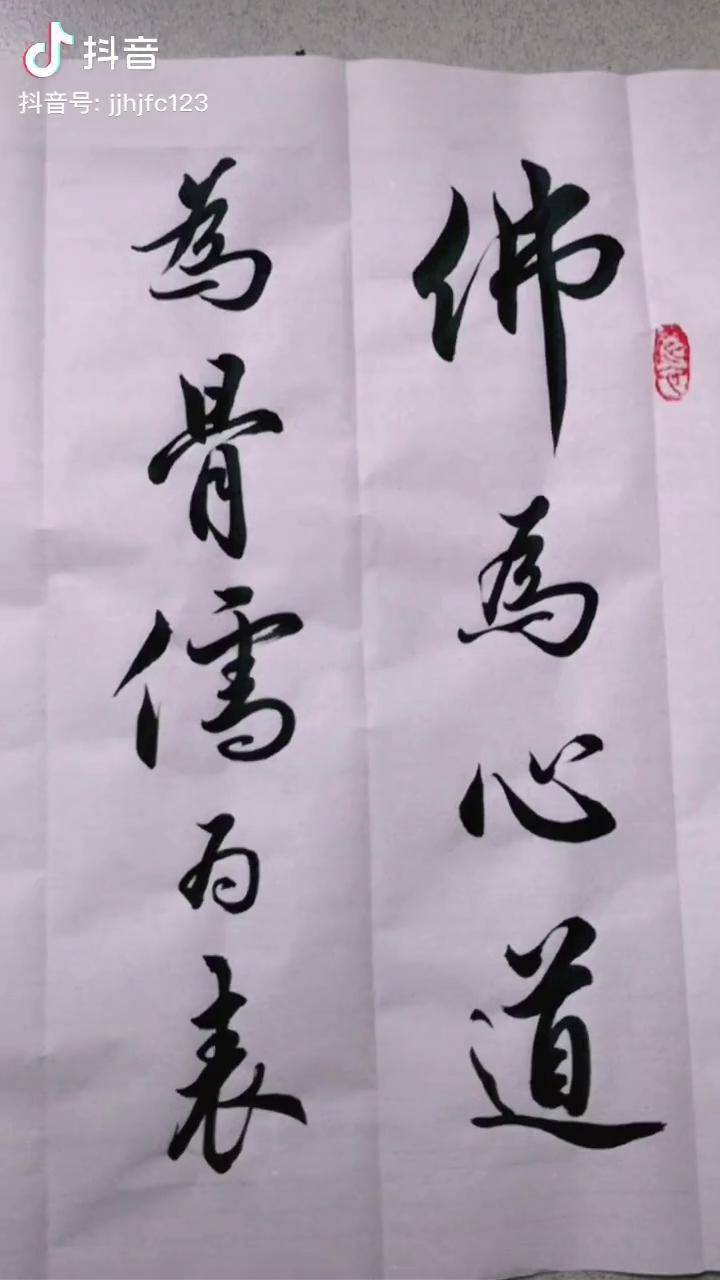 抖音
抖音号: jjhjfc123
佛為心道
為骨儒为表